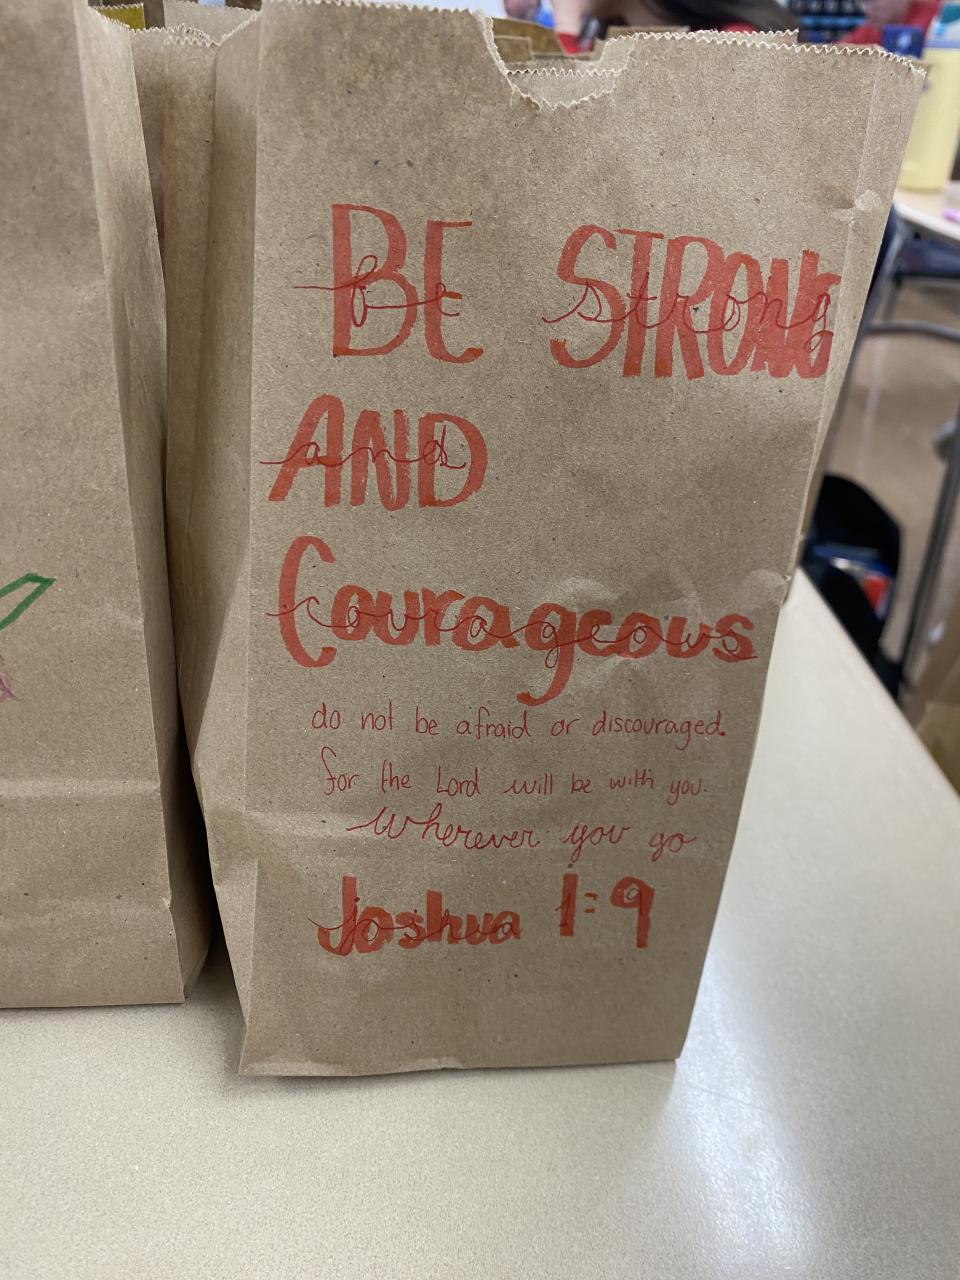 BE STRONG
be strong
AND
and
Courageous
courageous
do not be afraid or discouraged.
for the Lord will be with you.
Wherever you go
Joshua 1:9
joshua